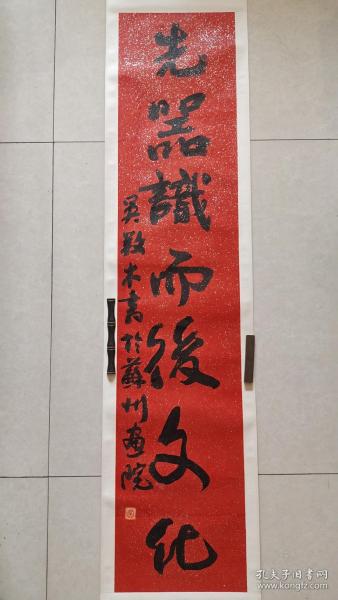 先器識而後文化
吴敎木書於蘇州畫院
孔夫子旧书网
www.kongfz.com